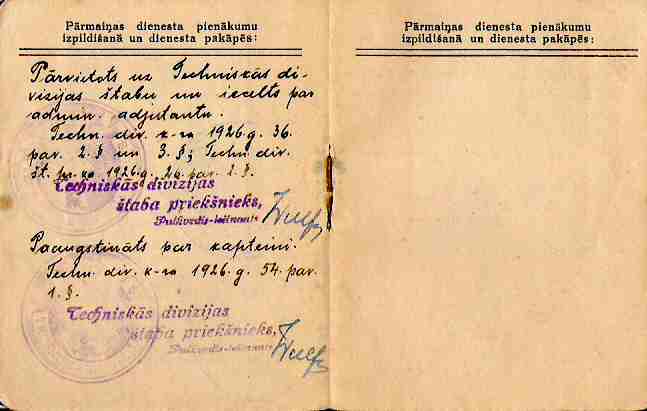 Pārmaiņas dienesta pienākumu
izpildīšanā un dienesta pakāpēs:
Pārvietots uz Techniskās di-
vizijas štabu un iecelts par
admin. adjutantu.
Techn. div. k-ra 1926.g. 36.
par. 2.§ un 3.§; Techn. div.
št. pr-ka 1926.g. 26. par. 2.§.
Techniskās divizijas
štaba priekšnieks,
Pulkvedis-leitnants
Paaugstināts par kapteini.
Techn. div. k-ra 1926.g. 54. par.
1.§.
Techniskās divizijas
štaba priekšnieks,
Pulkvedis-leitnants
Pārmaiņas dienesta pienākumu
izpildīšanā un dienesta pakāpēs: